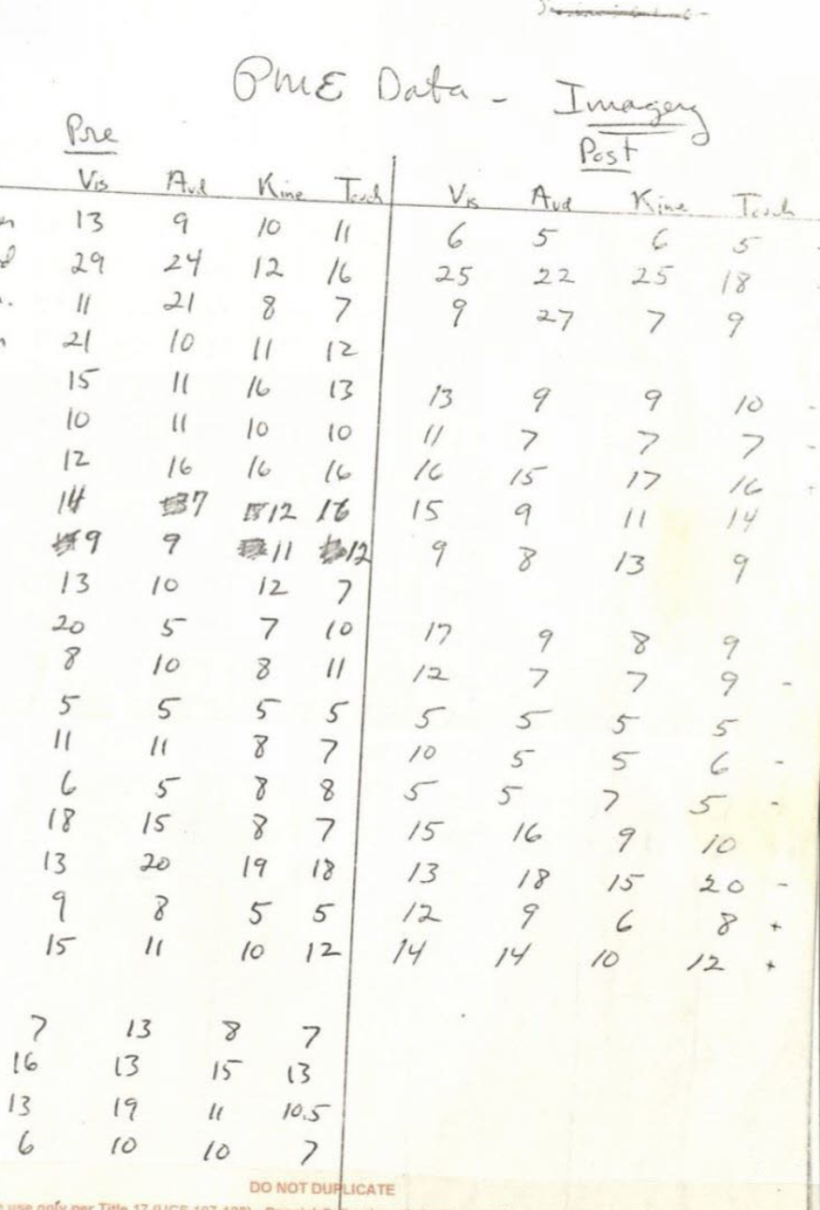 PME Data - Imagery
Pre Post
Vis Aud Kine Touch Vis Aud Kine Touch
13 9 10 11 6 5 6 5
29 24 12 16 25 22 25 18
11 21 8 7 9 27 7 9
21 10 11 12
15 11 16 13 13 9 9 10 -
10 11 10 10 11 7 7 7 -
12 16 16 16 16 15 17 16 +
14 7 12 16 15 9 11 14
9 9 11 12 9 8 13 9
13 10 12 7
20 5 7 10 17 9 8 9
8 10 8 11 12 7 7 9 -
5 5 5 5 5 5 5 5
11 11 8 7 10 5 5 6 -
6 5 8 8 5 5 7 5 -
18 15 8 7 15 16 9 10
13 20 19 18 13 18 15 20 -
9 8 5 5 12 9 6 8 +
15 11 10 12 14 14 10 12 +
7 13 8 7
16 13 15 13
13 19 11 10.5
6 10 10 7
DO NOT DUPLICATE
use only per Title 17